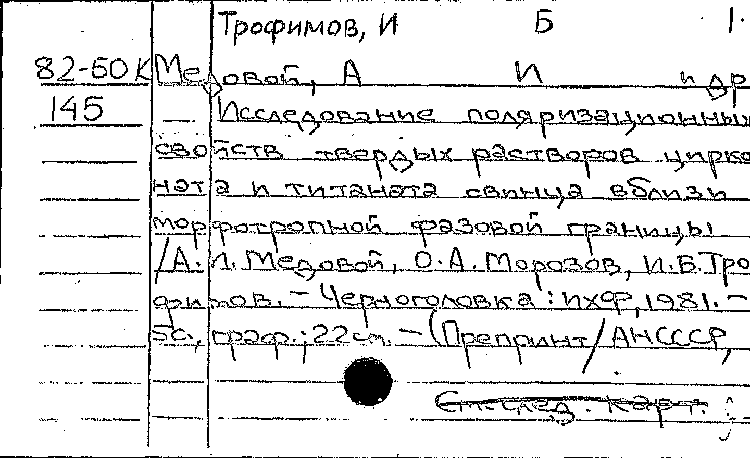 Трофимов, И Б 1.
82-50К Медовой, А И и др
145 — Исследование поляризационных
свойств твердых растворов цирко
ната и титаната свинца вблизи
морфотропной фазовой границы
/А.И. Медовой, О.А. Морозов, И.Б. Тро
фимов. – Черноголовка: ИХФ, 1981. –
5с., граф.; 22см. – (Препринт/АНСССР,
См. след. карт.